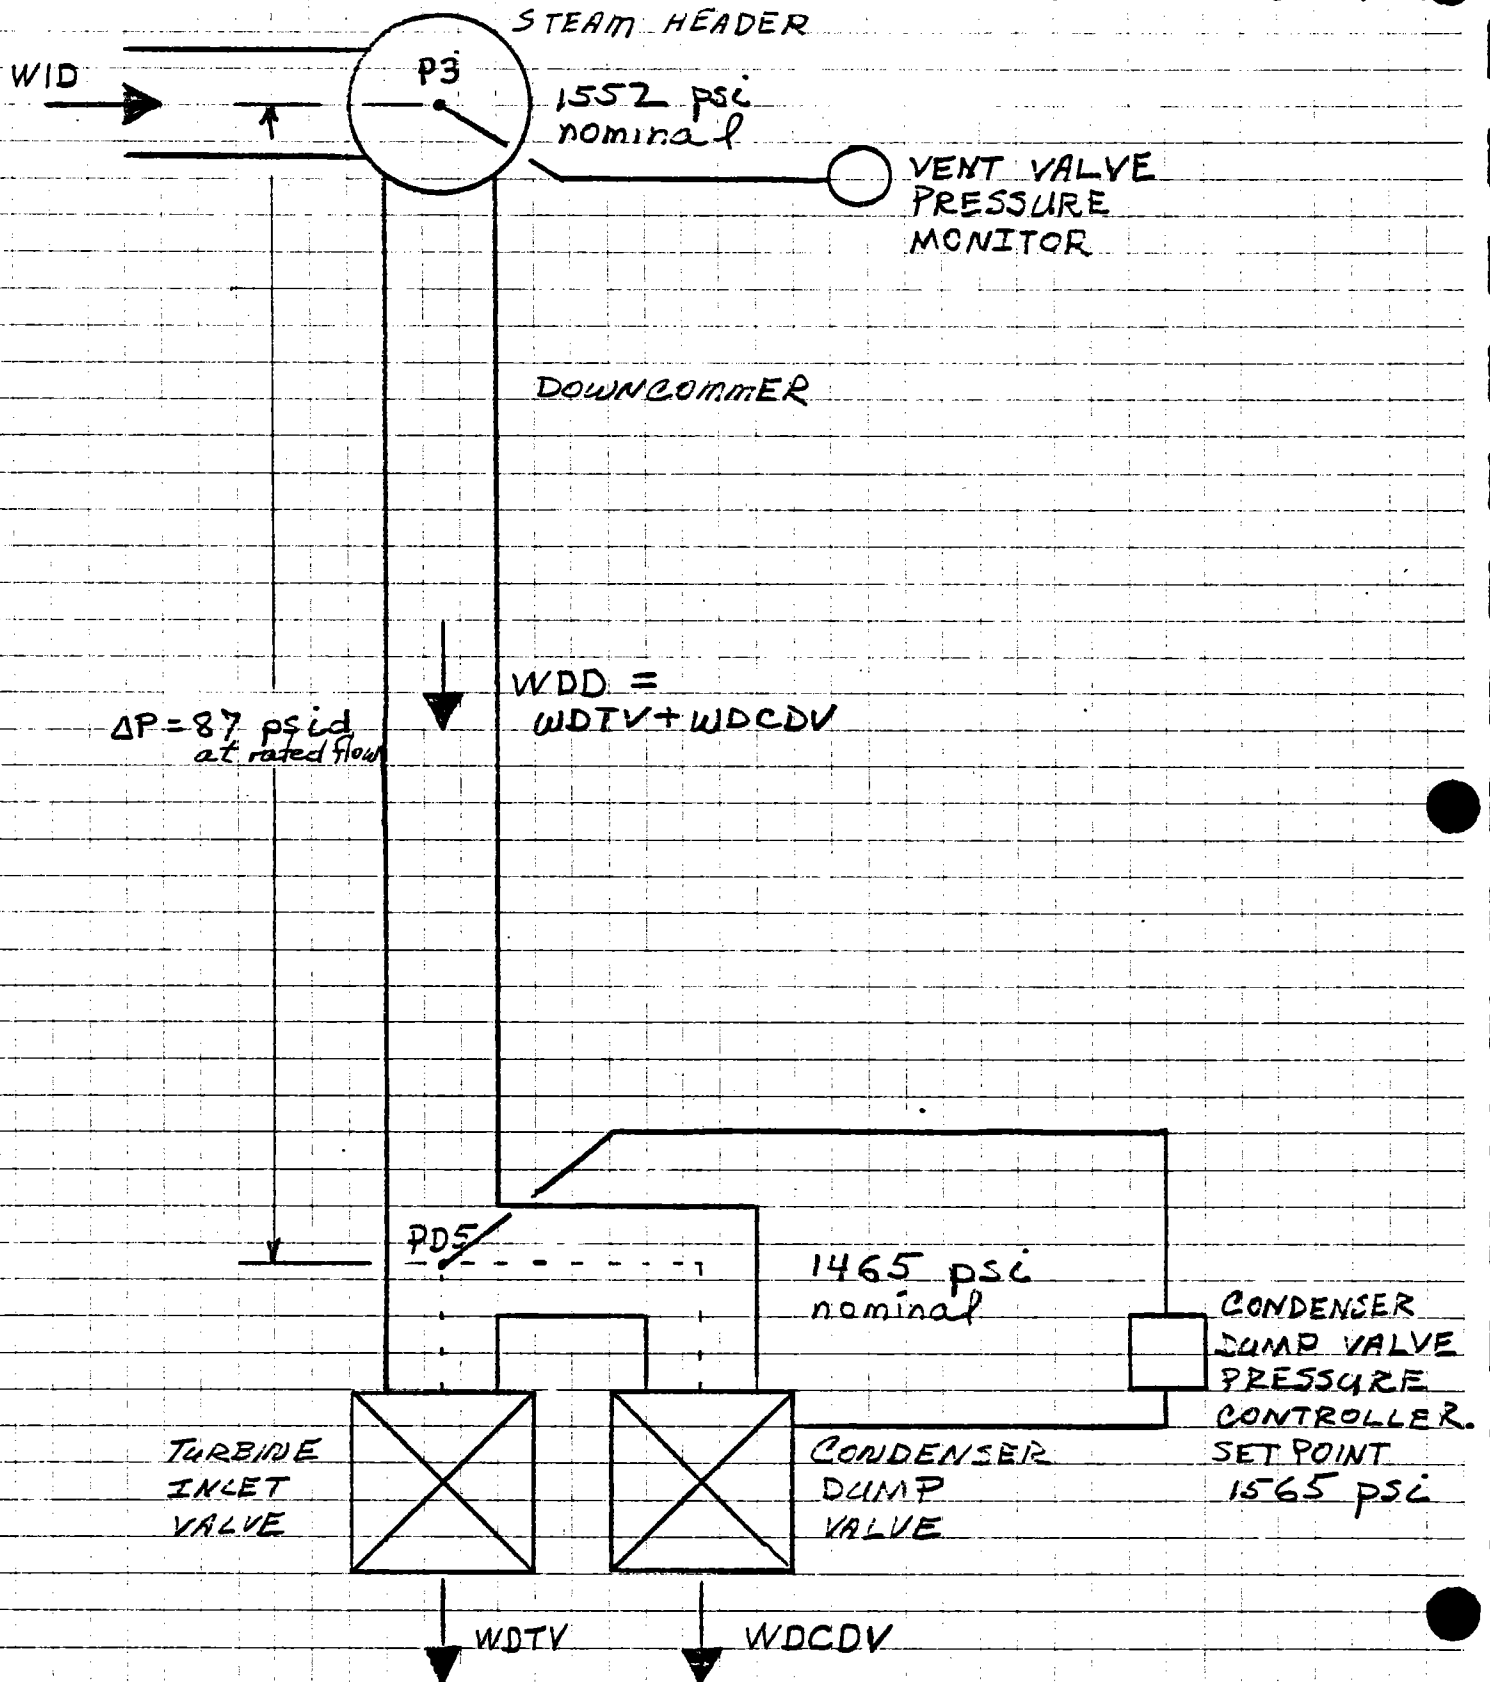 STEAM HEADER
WID
P3
1552 psi
nominal
VENT VALVE
PRESSURE
MONITOR
DOWNCOMMER
WDD =
WDTV + WDCDV
ΔP = 87 psid
at rated flow
PD5
1465 psi
nominal
CONDENSER
DUMP VALVE
PRESSURE
CONTROLLER.
SET POINT
1565 psi
TURBINE
INLET
VALVE
CONDENSER
DUMP
VALVE
WDTV
WDCDV